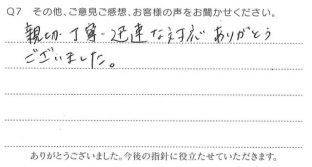 Q7 その他、ご意見ご感想、お客様の声をお聞かせください。
親切・丁寧・迅速な対応ありがとう
ございました。
ありがとうございました。今後の指針に役立たせていただきます。